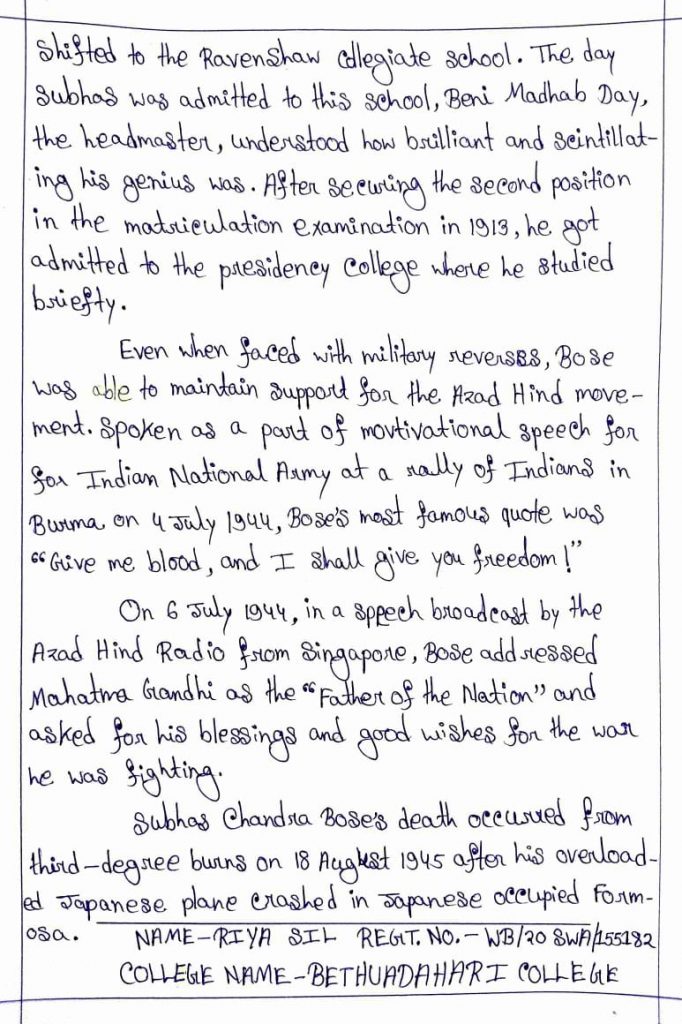 Shifted to the Ravenshaw Collegiate school. The day
Subhas was admitted to this school, Beni Madhab Day,
the headmaster, understood how brilliant and scintillat-
ing his genius was. After securing the second position
in the matriculation examination in 1913, he got
admitted to the presidency College where he studied
briefty.
Even when faced with military reverses, Bose
was able to maintain support for the Azad Hind move-
ment. Spoken as a part of movtivational speech for
for Indian National Army at a rally of Indians in
Burma on 4 July 1944, Bose's most famous quote was
"Give me blood, and I shall give you freedom!"
On 6 July 1944, in a sppech broadcast by the
Azad Hind Radio from Singapore, Bose addressed
Mahatma Gandhi as the "Father of the Nation" and
asked for his blessings and good wishes for the war
he was fighting.
Subhas Chandra Bose's death occurred from
third-degree burns on 18 August 1945 after his overload-
ed Japanese plane crashed in Japanese occupied Form-
osa.
NAME-RIYA SIL REGT. NO.- WB/20 SWA/155182
COLLEGE NAME-BETHUADAHARI COLLEGE